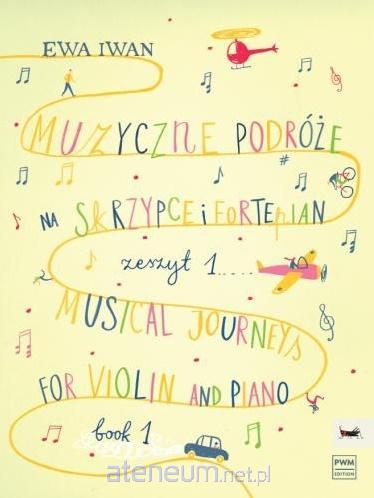 EWA IWAN
MUZYCZNE PODRÓŻE
NA SKRZYPCE i FORTEPIAN
zeszyt 1.....
MUSICAL JOURNEYS
FOR VIOLIN AND PIANO
book 1
PWM
EDITION
ateneum.net.pl